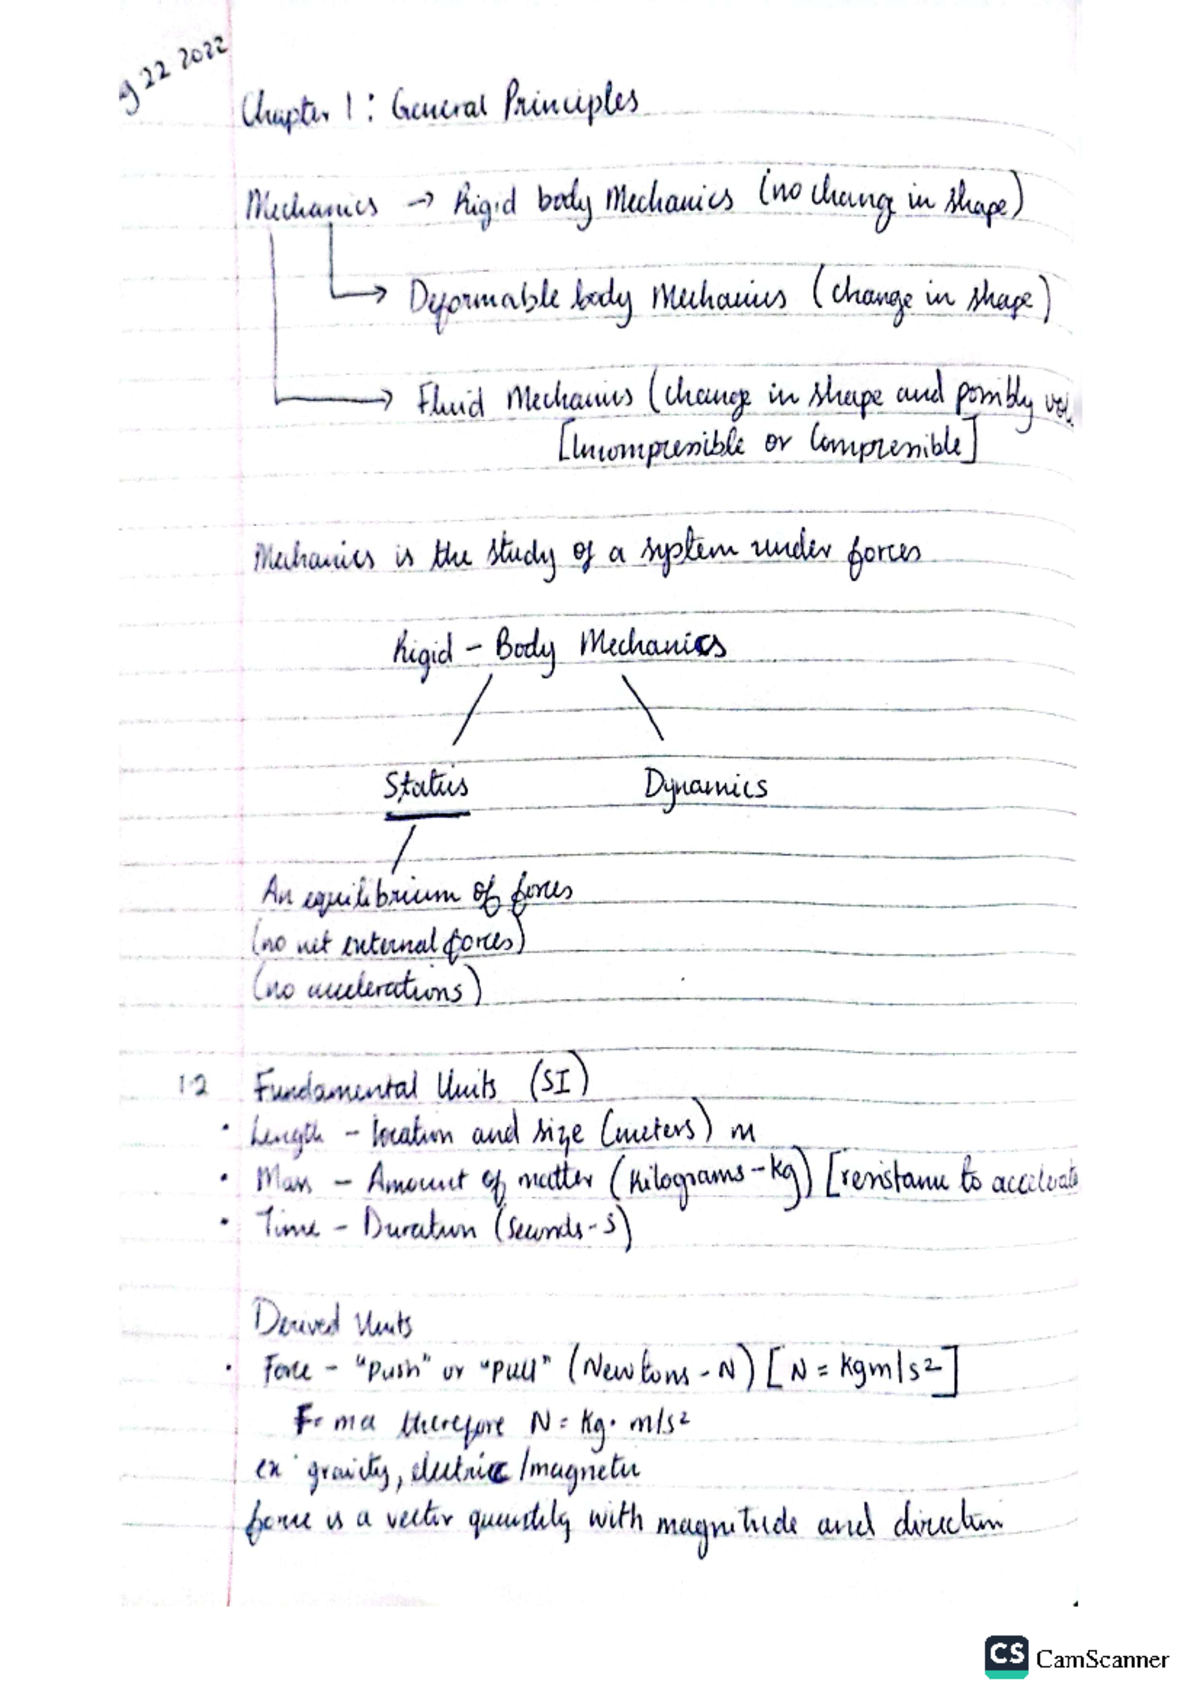 g 22 2022
Chapter 1 : General Principles
Mechanics → Rigid body Mechanics (no change in shape)
→ Deformable body Mechanics (change in shape)
→ Fluid Mechanics (change in shape and possibly vol.
[Incompressible or Compressible]
Mechanics is the study of a system under forces
Rigid - Body Mechanics
Statics Dynamics
An equilibrium of forces
(no net external forces)
(no accelerations)
1.2 Fundamental Units (SI)
• Length - location and size (meters) m
• Mass - Amount of matter (Kilograms - kg) [resistance to accelerate
• Time - Duration (seconds - s)
Derived Units
• Force - "Push" or "Pull" (Newtons - N) [N = kgm/s²]
F = ma therefore N = kg · m/s²
ex gravity, electric/magnetic
force is a vector quantity with magnitude and direction
CS CamScanner